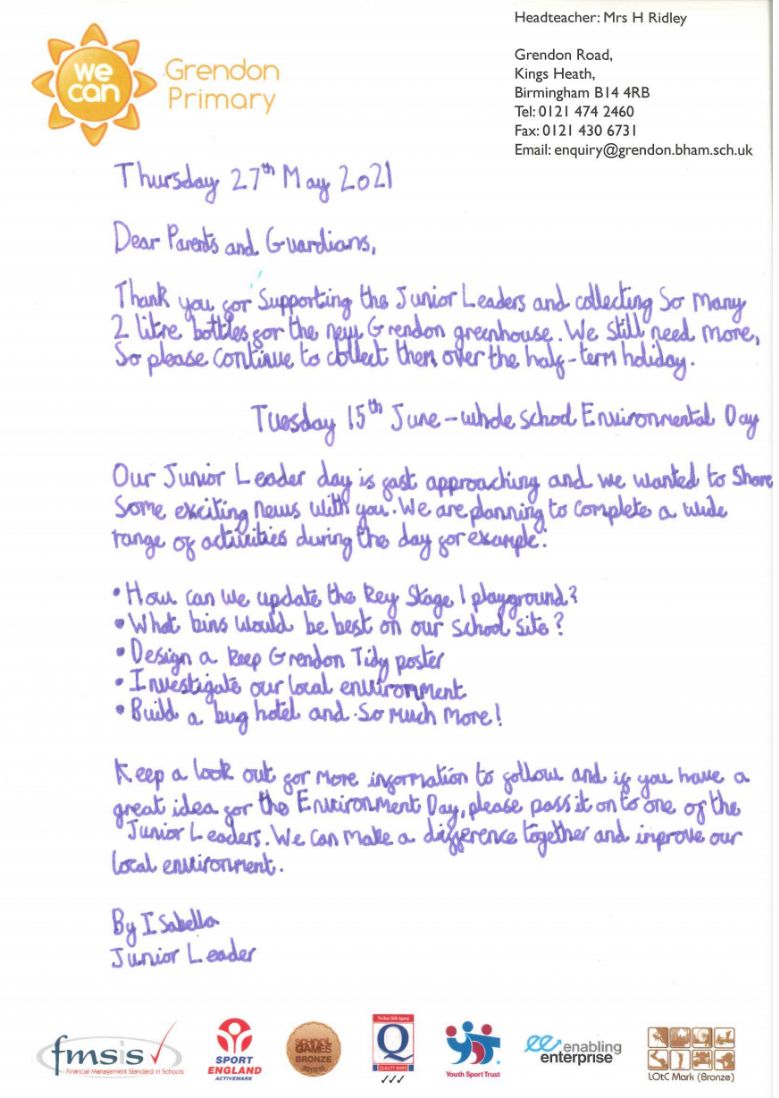 Headteacher: Mrs H Ridley
we
can
Grendon
Primary
Grendon Road,
Kings Heath,
Birmingham B14 4RB
Tel: 0121 474 2460
Fax: 0121 430 6731
Email: enquiry@grendon.bham.sch.uk
Thursday 27th May 2021
Dear Parents and Guardians,
Thank you for supporting the Junior Leaders and collecting so many
2 litre bottles for the new Grendon greenhouse. We still need more,
So please continue to collect them over the half-term holiday.
Tuesday 15th June - whole school Environmental Day
Our Junior Leader day is fast approaching and we wanted to share
some exciting news with you. We are planning to complete a wide
range of activities during the day for example:
• How can we update the Key Stage 1 playground?
• What bins would be best on our school site?
• Design a keep Grendon Tidy poster
• Investigate our local environment
• Build a bug hotel and so much more!
Keep a look out for more information to follow and if you have a
great idea for the Environment Day, please pass it on to one of the
Junior Leaders. We can make a difference together and improve our
local environment.
By Isabella
Junior Leader
fmsis
Financial Management Standard in Schools
SPORT
ENGLAND
ACTIVEMARK
SCHOOL
GAMES
BRONZE
Q
QUALITY MARK
Youth Sport Trust
ee enabling
enterprise
LOtC Mark (Bronze)